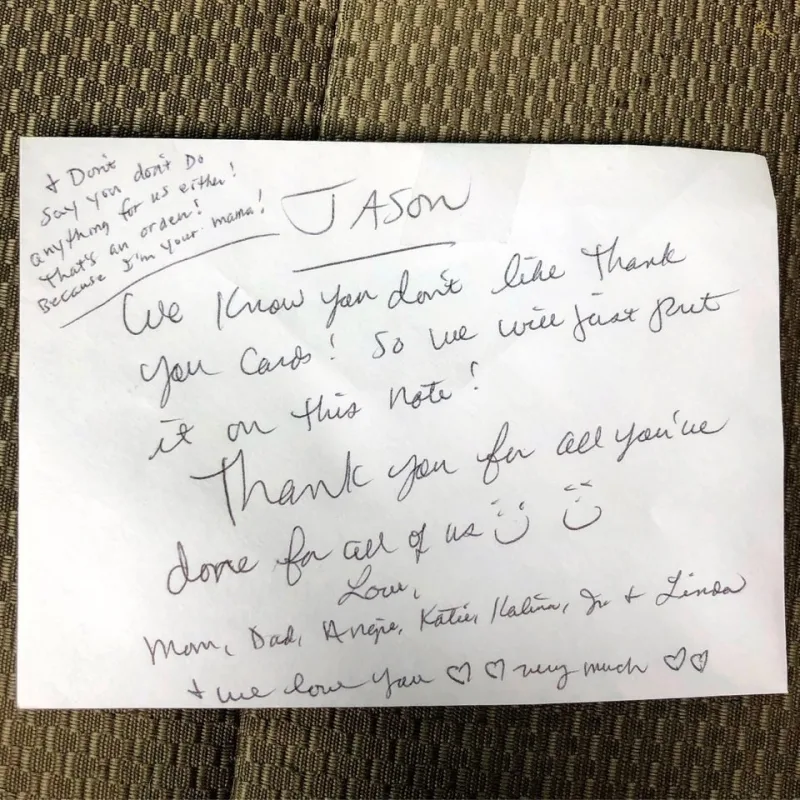 + Don't
Say you don't Do
anything for us either!
That's an order!
Because I'm your mama!
JASON
We know you don't like Thank
you Cards! So we will just put
it on this note!
Thank you for all you've
done for all of us
Love,
Mom, Dad, Angie, Katie, Kalina, Jr + Linda
+ we love you ♡ ♡ very much ♡♡